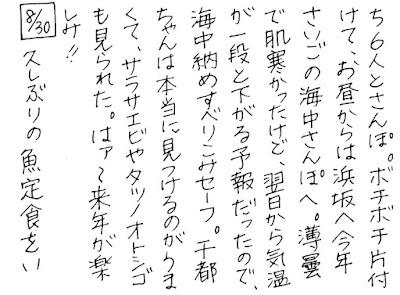 ち6人とさんぽ。ボチボチ片付
けて、お昼からは浜坂へ今年
さいごの海中さんぽへ。薄曇
で肌寒かったけど、翌日から気温
が一段と下がる予報だったので、
海中納めすべりこみセーフ。千都
ちゃんは本当に見つけるのがうま
くて、サラサエビやタツノオトシゴ
も見られた。はァ〜来年が楽
しみ!!
8/30 久しぶりの魚定食をい